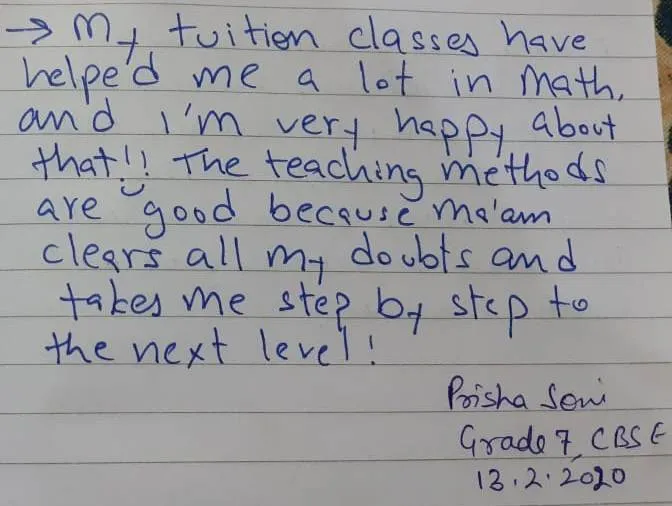 → My tuition classes have
helped me a lot in math,
and I'm very happy about
that!! The teaching methods
are good because ma'am
clears all my doubts and
takes me step by step to
the next level!
Prisha Soni
Grade 7, CBSE
13.2.2020